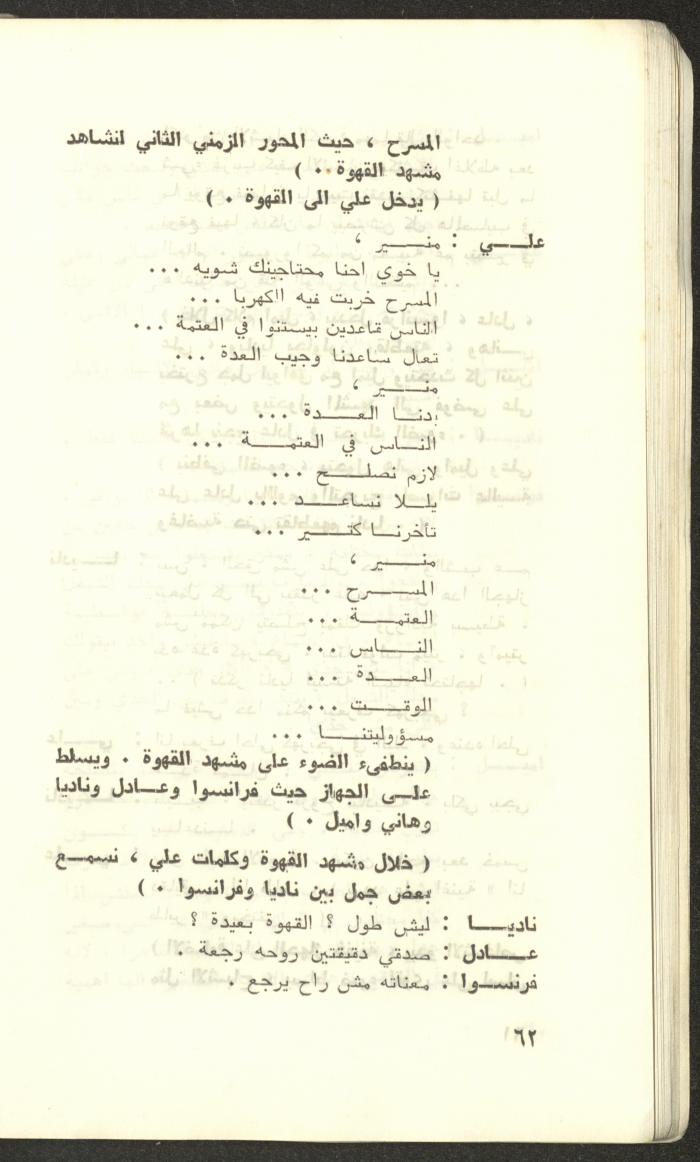 المسرح ، حيث المحور الزمني الثاني لنشاهد
مشهد القهوة ٠٠ )
( يدخل علي الى القهوة ٠ )
علـــي : منـــير ،
يا خوي احنا محتاجينك شويه ...
المسرح خربت فيه الكهربا ...
الناس قاعدين بيستنوا في العتمة ...
تعال ساعدنا وجيب العدة ...
منـــير ،
بدنـا العـــدة ...
النـاس في العتمـــة ...
لازم نصلـــح ...
يلـلا نساعـــد ...
تأخرنـا كتـــير ...
منـــير ،
المســـرح ...
العتمـــة ...
النـــاس ...
العـــدة ...
الوقـــت ...
مسؤوليتنـــا ...
( ينطفىء الضوء على مشهد القهوة ٠ ويسلط
علـى الجهاز حيث فرانسوا وعـادل وناديا
وهاني واميل ٠ )
( خلال مشهد القهوة وكلمات علي ، نسمـع
بعض جمل بين ناديا وفرانسوا ٠ )
ناديـــا : ليش طول ؟ القهوة بعيدة ؟
عـــادل : صدقي دقيقتين روحه رجعة ٠
فرنســـوا : معناته مش راح يرجع ٠
٦٢